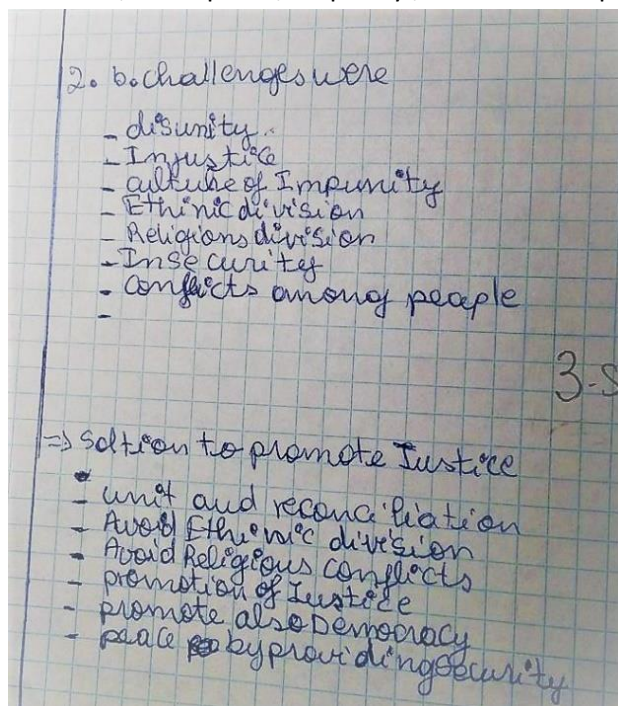 2. b. challenges were
- disunity.
- Injustice
- culture of Impunity
- Ethinic division
- Religions division
- Insecurity
- conflicts among people
-
3-S
=> Soltion to promote Justice
- unit and reconciliation
- Avoid Ethinic division
- Avoid Religious conflicts
- promotion of Justice
- promote also Democracy
- peace by providing security